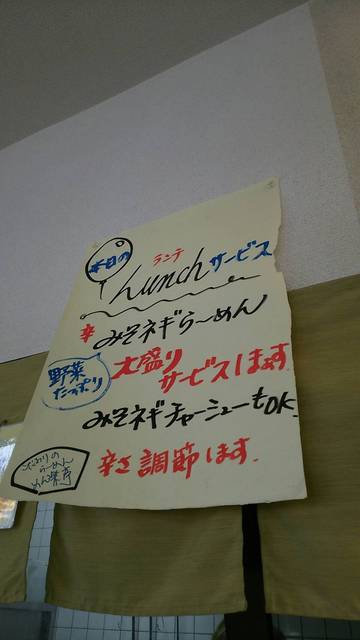 本日の
ランチ
Lunchサービス
辛みそネギらーめん
野菜
たっぷり
大盛り
サービスします
みそネギチャーシューもOK
こだわりの
らーめん
めん楽亭
辛さ調節します.